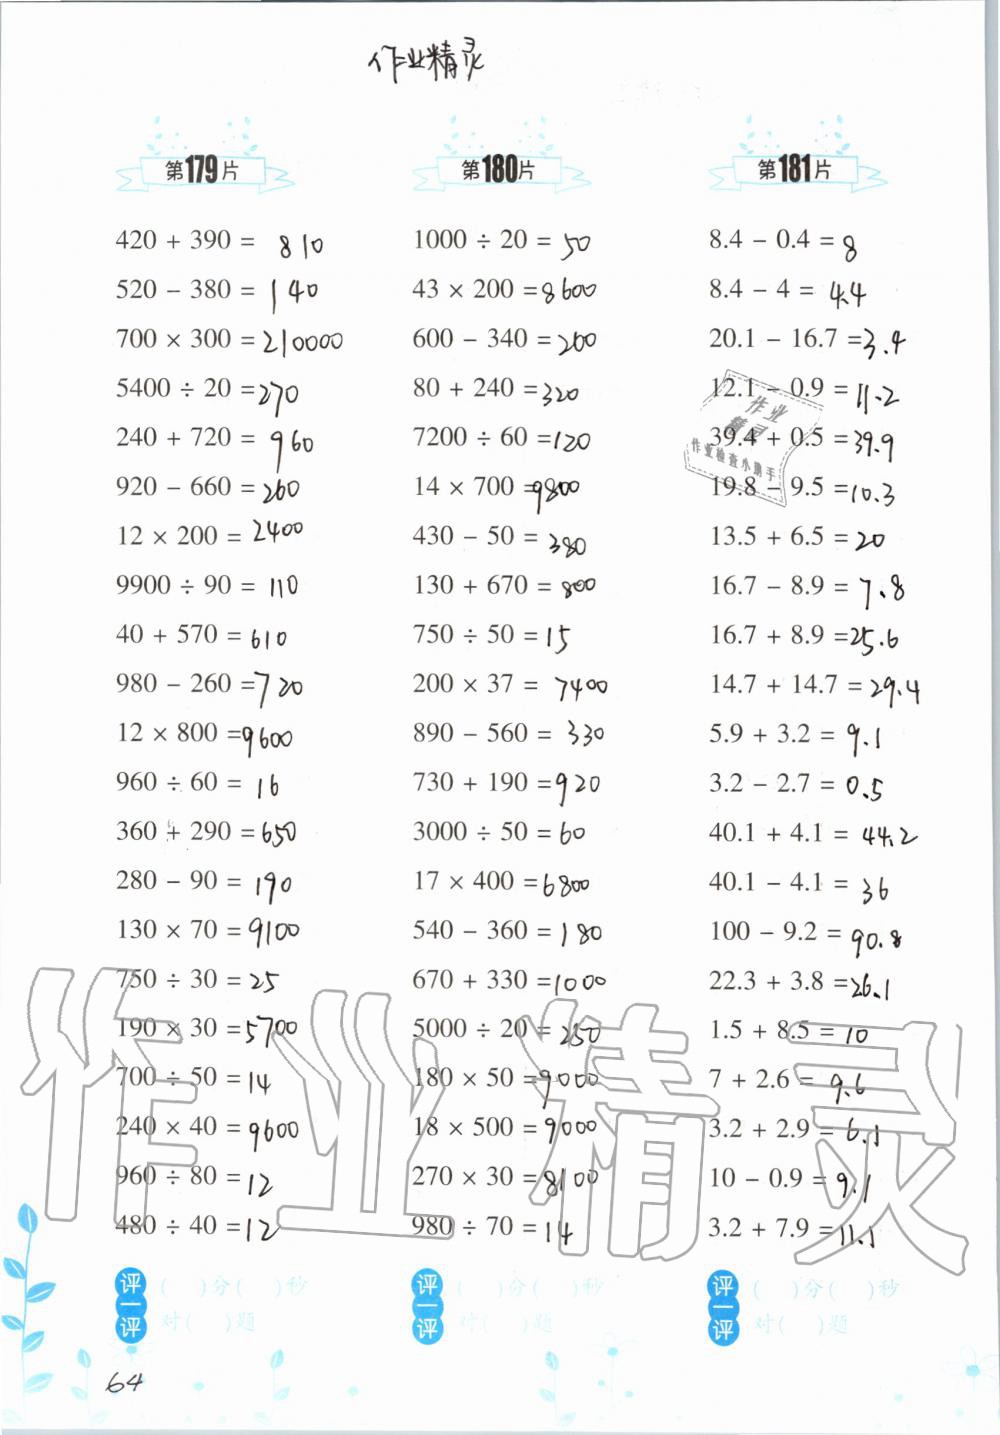 作业精灵
第179片
420 + 390 = 810
520 - 380 = 140
700 × 300 = 210000
5400 ÷ 20 = 270
240 + 720 = 960
920 - 660 = 260
12 × 200 = 2400
9900 ÷ 90 = 110
40 + 570 = 610
980 - 260 = 720
12 × 800 = 9600
960 ÷ 60 = 16
360 + 290 = 650
280 - 90 = 190
130 × 70 = 9100
750 ÷ 30 = 25
190 × 30 = 5700
700 ÷ 50 = 14
240 × 40 = 9600
960 ÷ 80 = 12
480 ÷ 40 = 12
评一评
( )分( )秒
对( )题
第180片
1000 ÷ 20 = 50
43 × 200 = 8600
600 - 340 = 260
80 + 240 = 320
7200 ÷ 60 = 120
14 × 700 = 9800
430 - 50 = 380
130 + 670 = 800
750 ÷ 50 = 15
200 × 37 = 7400
890 - 560 = 330
730 + 190 = 920
3000 ÷ 50 = 60
17 × 400 = 6800
540 - 360 = 180
670 + 330 = 1000
5000 ÷ 20 = 250
180 × 50 = 9000
18 × 500 = 9000
270 × 30 = 8100
980 ÷ 70 = 14
评一评
( )分( )秒
对( )题
第181片
8.4 - 0.4 = 8
8.4 - 4 = 4.4
20.1 - 16.7 = 3.4
12.1 - 0.9 = 11.2
39.4 + 0.5 = 39.9
19.8 - 9.5 = 10.3
13.5 + 6.5 = 20
16.7 - 8.9 = 7.8
16.7 + 8.9 = 25.6
14.7 + 14.7 = 29.4
5.9 + 3.2 = 9.1
3.2 - 2.7 = 0.5
40.1 + 4.1 = 44.2
40.1 - 4.1 = 36
100 - 9.2 = 90.8
22.3 + 3.8 = 26.1
1.5 + 8.5 = 10
7 + 2.6 = 9.6
3.2 + 2.9 = 6.1
10 - 0.9 = 9.1
3.2 + 7.9 = 11.1
评一评
( )分( )秒
对( )题
作业
精灵
作业检查小助手
作业精灵
64